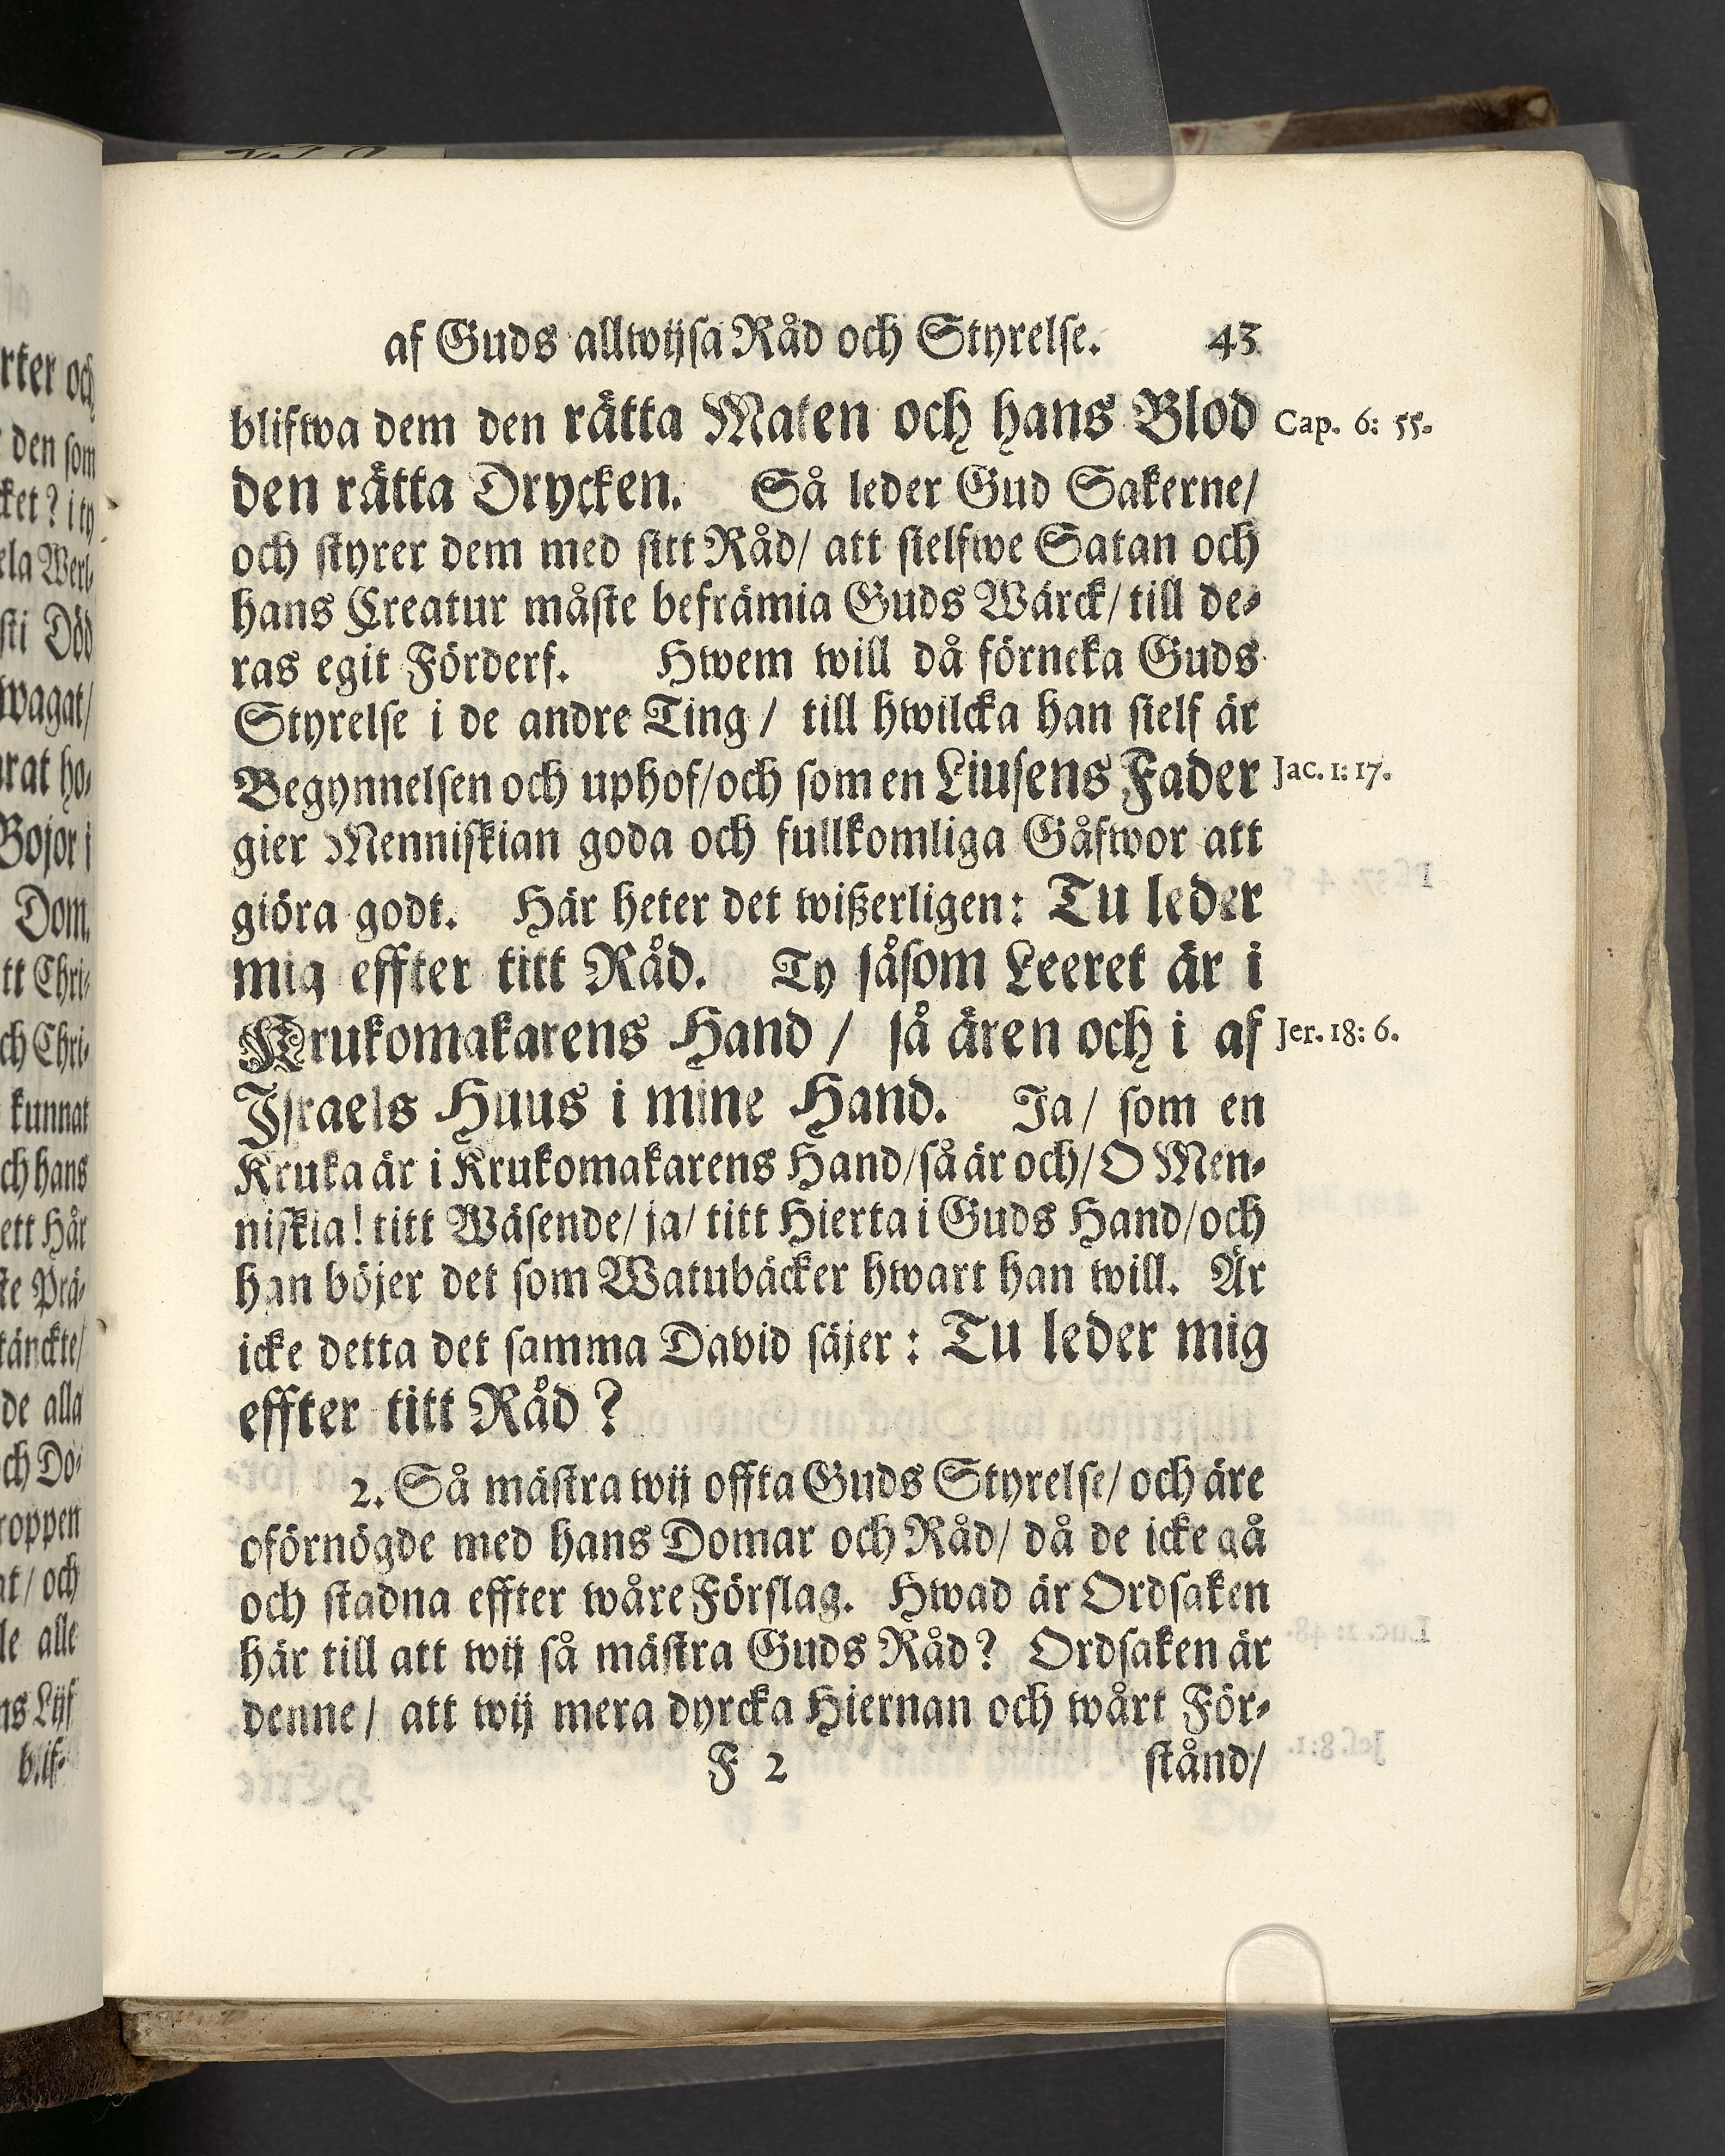 af Guds allwijsa Råd och Styrelse. 43
blifwa dem den rätta Maten och hans Blod Cap. 6: 55.
den rätta Drycken. Så leder Gud Sakerne/
och styrer dem med sitt Råd/ att sielfwe Satan och
hans Creatur måste befrämia Guds Wärck/ till de-
ras egit Förderf. Hwem will då förneka Guds
Styrelse i de andre Ting/ till hwilcka han sielf är
Begynnelsen och uphof/och som en Liusens Fader Jac. 1: 17.
gier Menniskian goda och fullkomliga Gåfwor att
giöra godt. Här heter det wißerligen: Tu leder
mig effter titt Råd. Ty såsom Leeret är i
Krukomakarens Hand / så ären och i af Jer. 18: 6.
Israels Huus i mine Hand. Ja/ som en
Kruka är i Krukomakarens Hand/så är och/O Men-
niskia! titt Wäsende/ ja/ titt Hierta i Guds Hand/och
han böjer det som Watubäcker hwart han will. Är
icke detta det samma David säjer: Tu leder mig
effter titt Råd?
2. Så mästra wij offta Guds Styrelse/ och äre
oförnögde med hans Domar och Råd/ då de icke gå
och stadna effter wåre Förslag. Hwad är Ordsaken
här till att wij så mästra Guds Råd? Ordsaken är
denne/ att wij mera dyrcka Hiernan och wårt För-
F 2 stånd/